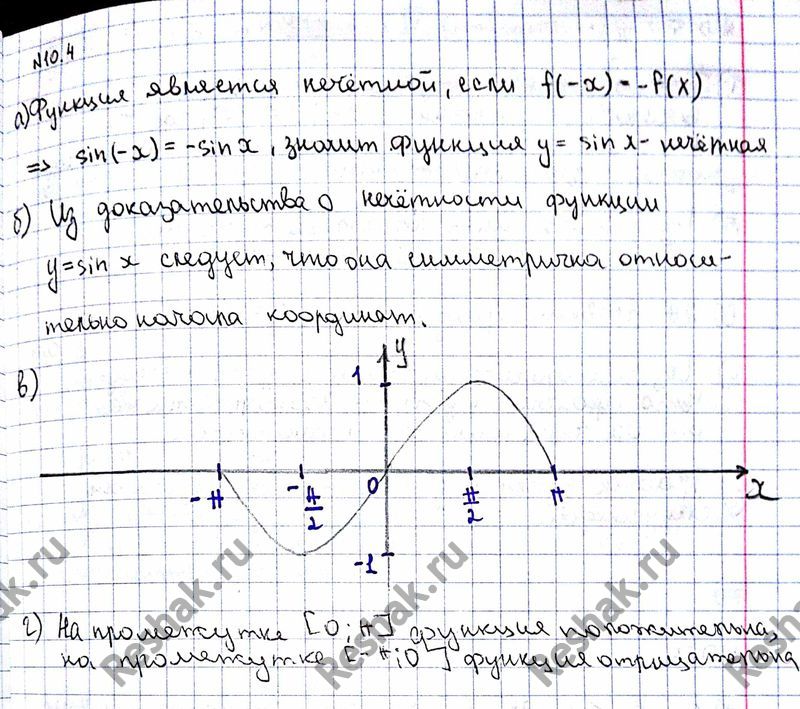 №10.4
а) Функция является нечётной, если f(-x) = -f(x)
=> sin(-x) = -sin x, значит функция y = sin x - нечётная
б) Из доказательства о нечётности функции
y = sin x следует, что она симметрична относи-
тельно начала координат.
в)
y
1
-π
-π/2
0
π/2
π
x
-1
г) На промежутке [0; π] функция положительна,
на промежутке [-π; 0] функция отрицательна
Reshak.ru
Reshak.ru
Reshak.ru
Reshak.ru